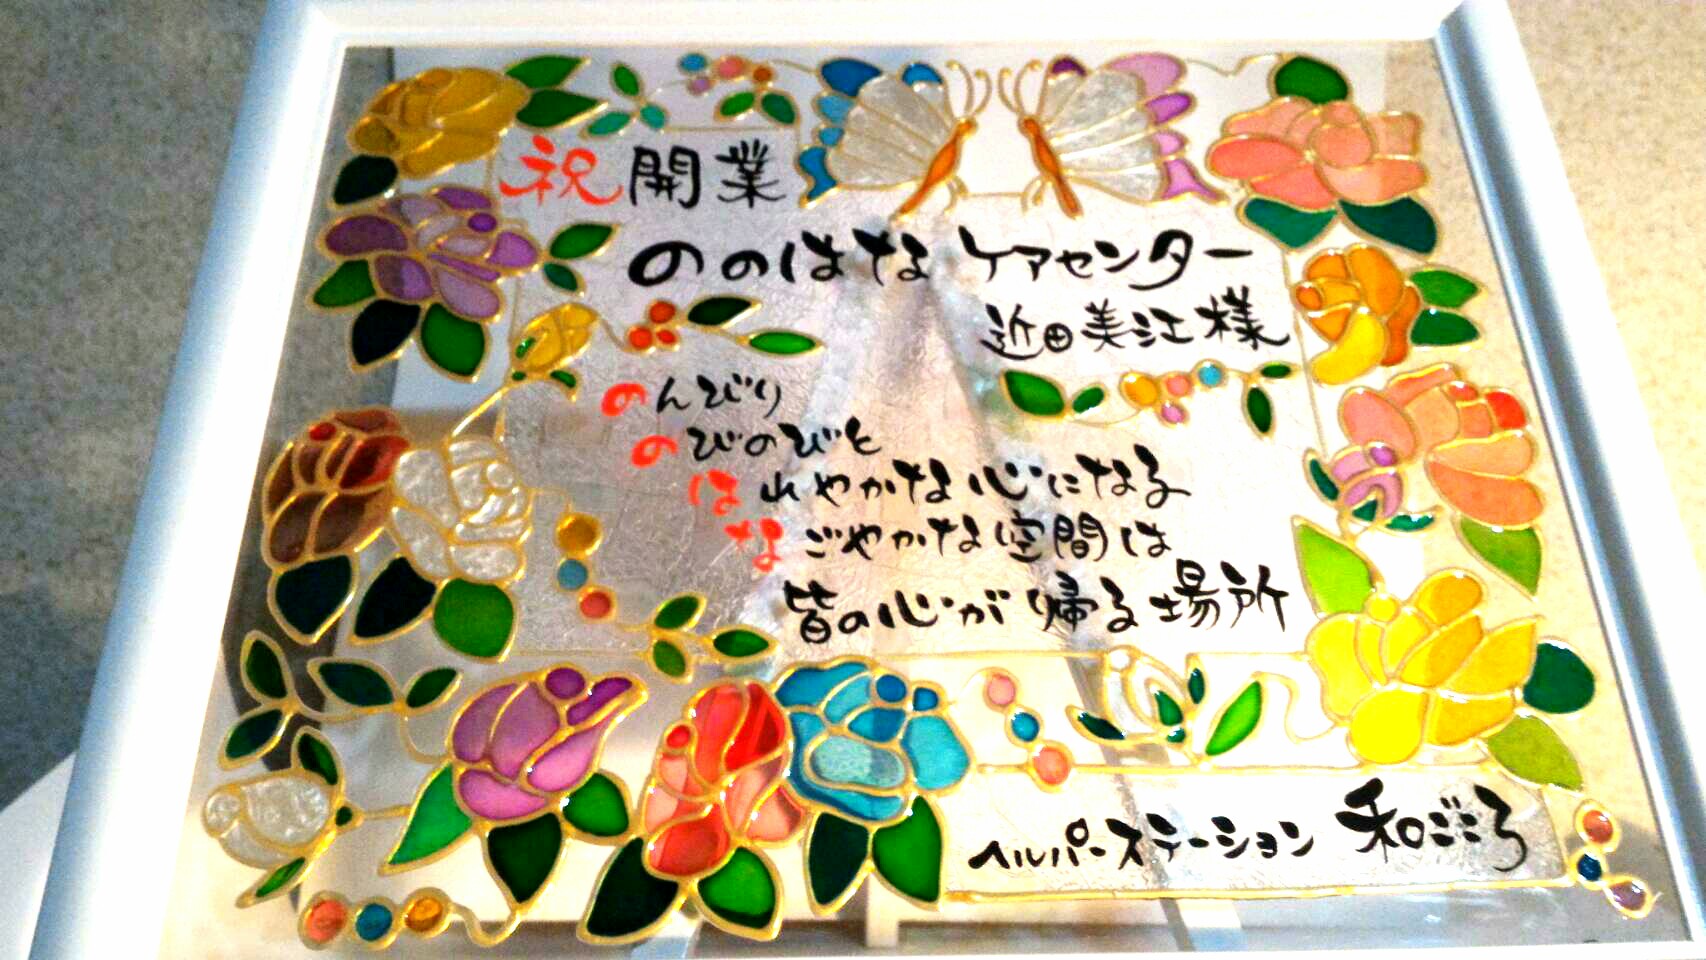 祝開業
ののはなケアセンター
近田美江様
のんびり
のびのびと
はれやかな心になる
なごやかな空間は
皆の心が帰る場所
ヘルパーステーション 和ごころ